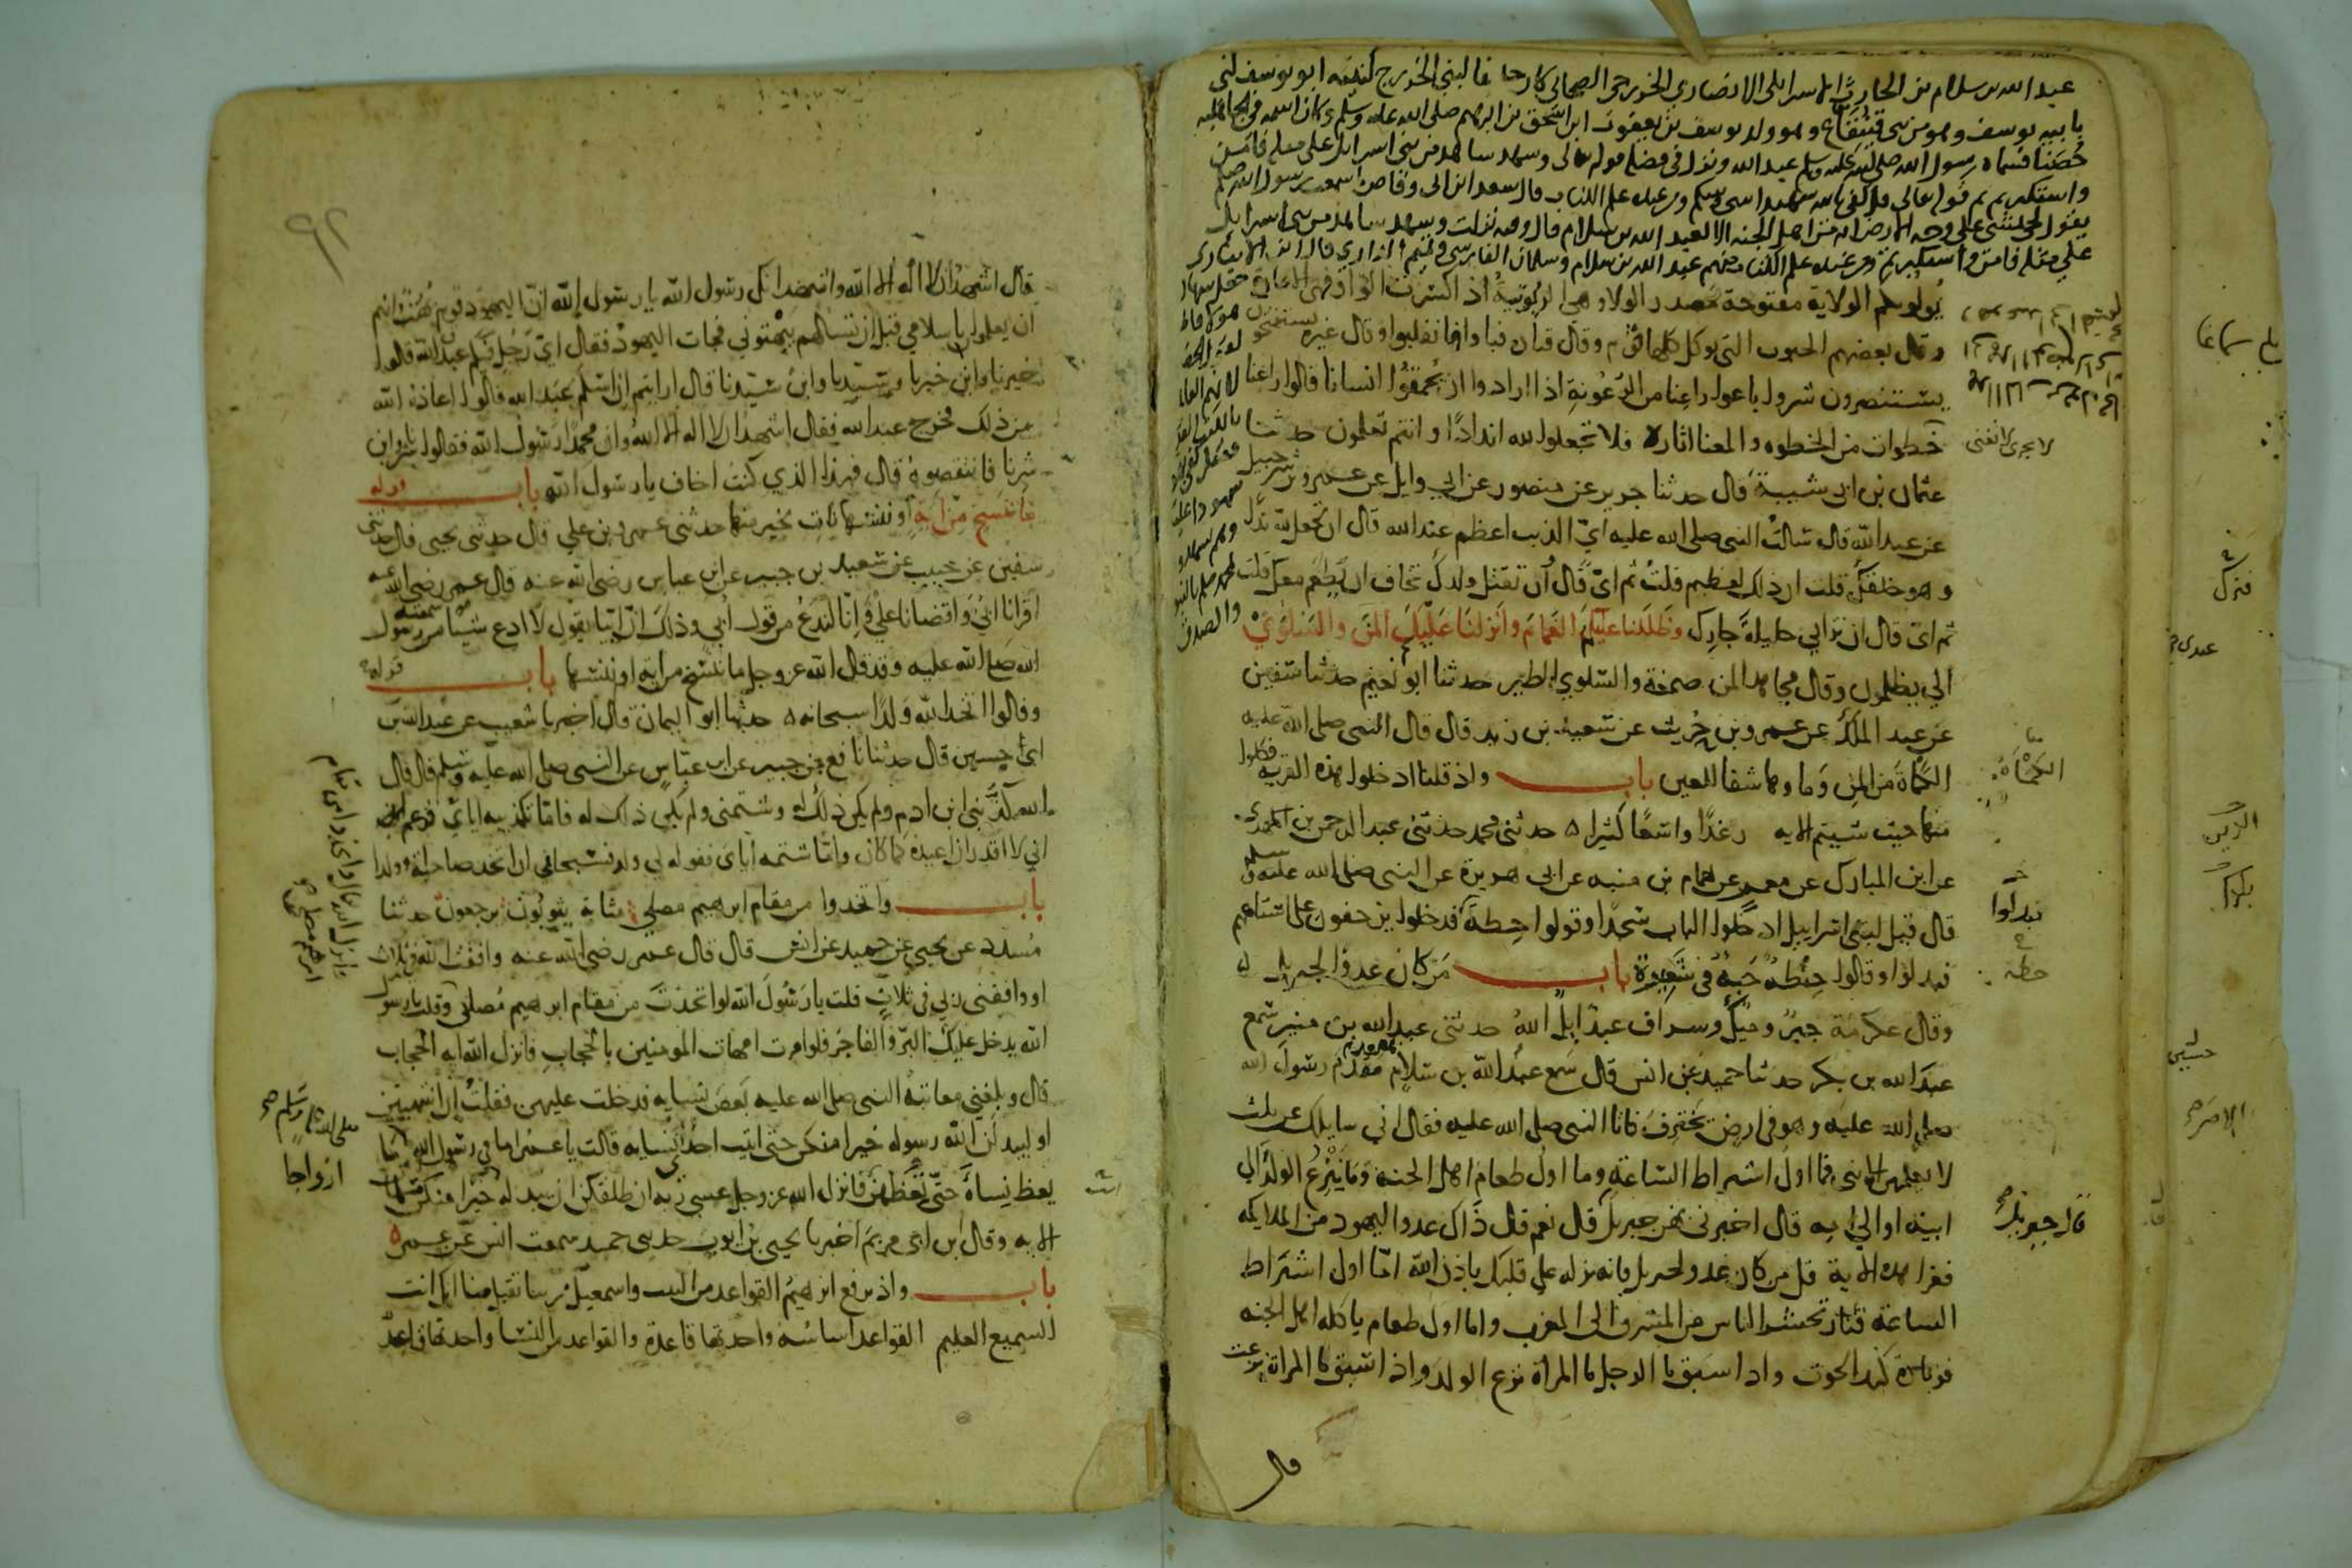 عبد الله بن سلام بن الحارث الاسرايلي الانصاري الخزرجي الصحابي كان حليفا لبني الخزرج كنيته ابو يوسف كني
بابنه يوسف وهو من بني قينقاع وهو ولد يوسف بن يعقوب ابن اسحق بن ابرهيم صلى الله عليه وسلم وكان اسمه في الجاهلية
حصينا فسماه رسول الله صلى الله عليه وسلم عبد الله ونزل في فضله قوله تعالى وشهد شاهد من بني اسرايل على مثله فامن
واستكبرتم ثم قوله تعالى قل كفى بالله شهيدا بيني وبينكم ومن عنده علم الكتاب قال سعد ابن ابي وقاص ما سمعت رسول الله صلعم
يقول لحي يمشي على وجه الارض انه من اهل الجنة الا لعبد الله بن سلام قال وفيه نزلت وشهد شاهد من بني اسرايل
على مثله فامن واستكبرتم ومن عنده علم الكتاب منهم عبد الله بن سلام وسلمان الفارسي وتميم الداري
يولونكم الولاية مفتوحة مصدر الولاء وهي الربوبية اذا كسرت الواو فهي الامارة
وقال بعضهم الحبوب التي توكل كلها فوم وقال قتادة فباوا فانقلبوا وقال غيره يستفتحون
يستنصرون شروا باعوا راعنا من الرعونة اذا ارادوا ان يحمقوا انسانا قالوا راعنا
خطوات من الخطوه والمعنا اثاره فلا تجعلوا لله اندادا وانتم تعلمون حدثنا
لا يجزي لا يغني
عثمان بن ابي شيبة قال حدثنا جرير عن منصور عن ابي وايل عن عمرو بن شرحبيل
عن عبد الله قال سالت النبي صلى الله عليه اي الذنب اعظم عند الله قال ان تجعل لله ندا
وهو خلقك قلت ان ذلك لعظيم قلت ثم اي قال ان تقتل ولدك تخاف ان يطعم معك قلت
ثم اي قال ان تزاني حليلة جارك وظللنا عليكم الغمام وانزلنا عليكم المن والسلوى
الى يظلمون وقال مجاهد المن صمغة والسلوى الطير حدثنا ابو نعيم حدثنا سفين
عن عبد الملك عن عمرو بن حريث عن سعيد بن زيد قال قال النبي صلى الله عليه
الكماة من المن وماوها شفا للعين باب واذ قلنا ادخلوا هذه القرية فكلوا
الكمأة
منها حيث شيتم الايه رغدا واسعا كثيرا حدثني محمد حدثني عبد الرحمن بن المهدي
عن ابن المبارك عن معمر عن همام بن منبه عن ابي هريرة عن النبي صلى الله عليه وسلم
قال قيل لبني اسراييل ادخلوا الباب سجدا وقولوا حطة فدخلوا يزحفون على استاههم
فبدلوا
فبدلوا وقالوا حنطة حبة في شعيرة باب من كان عدوا لجبريل
حطة
وقال عكرمة جبر وميك وسراف عبد ايل الله حدثني عبد الله بن منير سمع
عبد الله بن بكر حدثنا حميد عن انس قال سمع عبد الله بن سلام مقدم رسول الله
صلى الله عليه وهو في ارض يخترف فاتا النبي صلى الله عليه فقال اني سايلك عن ثلث
لا يعلمهن الا نبي فما اول اشراط الساعة وما اول طعام اهل الجنة وما ينزع الولد الى
ابيه او الى امه قال اخبرني بهن جبريل قال نعم قال ذاك عدو اليهود من الملايكه
قال جبريل
فقرا هذه الاية قل من كان عدوا لجبريل فانه نزله على قلبك باذن الله اما اول اشراط
الساعة فنار تحشر الناس من المشرق الى المغرب واما اول طعام ياكله اهل الجنه
فزيادة كبد الحوت واذا سبق ما الرجل ما المراة نزع الولد واذا سبق ما المراة نزعت
قال
٩٢
قال اشهد ان لا اله الا الله واشهد انك رسول الله يا رسول الله ان اليهود قوم بهت وانهم
ان يعلموا باسلامي قبل ان تسالهم يبهتوني فجات اليهود فقال اي رجل فيكم عبد الله قالوا
خيرنا وابن خيرنا وسيدنا وابن سيدنا قال ارايتم ان اسلم عبد الله قالوا اعاذه الله
من ذلك فخرج عبد الله فقال اشهد ان لا اله الا الله وان محمدا رسول الله فقالوا شرنا وابن
شرنا فانتقصوه قال فهذا الذي كنت اخاف يا رسول الله باب قوله
ما ننسخ من اية او ننسها نات بخير منها حدثني عمرو بن علي قال حدثني يحيى قال حدثني
سفين عن حبيب عن سعيد بن جبير عن ابن عباس رضي الله عنه قال عمر رضي الله عنه
اقرانا ابي واقضانا علي وانا لندع من قول ابي وذلك ان ابيا يقول لا ادع شيا سمعته من رسول
الله صلى الله عليه وقد قال الله عز وجل ما ننسخ من اية او ننسها باب قوله
وقالوا اتخذ الله ولدا سبحانه حدثنا ابو اليمان قال اخبرنا شعيب عن عبد الله بن
ابي حسين قال حدثنا نافع بن جبير عن ابن عباس عن النبي صلى الله عليه وسلم قال قال
الله كذبني ابن ادم ولم يكن ذلك له وشتمني ولم يكن ذاك له فاما تكذيبه اياي فزعم
اني لا اقدر ان اعيده كما كان واما شتمه اياي فقوله لي ولد فسبحاني ان اتخذ صاحبة او ولدا
باب واتخذوا من مقام ابرهيم مصلى مثابة يثوبون يرجعون حدثنا
مسدد عن يحيى عن حميد عن انس قال قال عمر رضي الله عنه وافقت الله في ثلاث
او وافقني ربي في ثلاث قلت يا رسول الله لو اتخذت من مقام ابرهيم مصلى وقلت يا رسول
الله يدخل عليك البر والفاجر فلو امرت امهات المومنين بالحجاب فانزل الله ايه الحجاب
قال وبلغني معاتبة النبي صلى الله عليه بعض نسايه فدخلت عليهن فقلت ان انتهيتن
صلى الله عليه وسلم
او ليبدلن الله رسوله خيرا منكن حتى اتيت احدى نسايه قالت يا عمر اما في رسول الله ما
ازواجا
يعظ نساه حتى تعظهن فانزل الله عز وجل عسى ربه ان طلقكن ان يبدله خيرا منكن مسلمات
الايه وقال ابن ابي مريم اخبرنا يحيى بن ايوب حدثني حميد سمعت انس عن عمر
باب واذ يرفع ابرهيم القواعد من البيت واسمعيل ربنا تقبل منا انك انت
السميع العليم القواعد اساسه واحدتها قاعدة والقواعد من النسا واحدتها قاعد